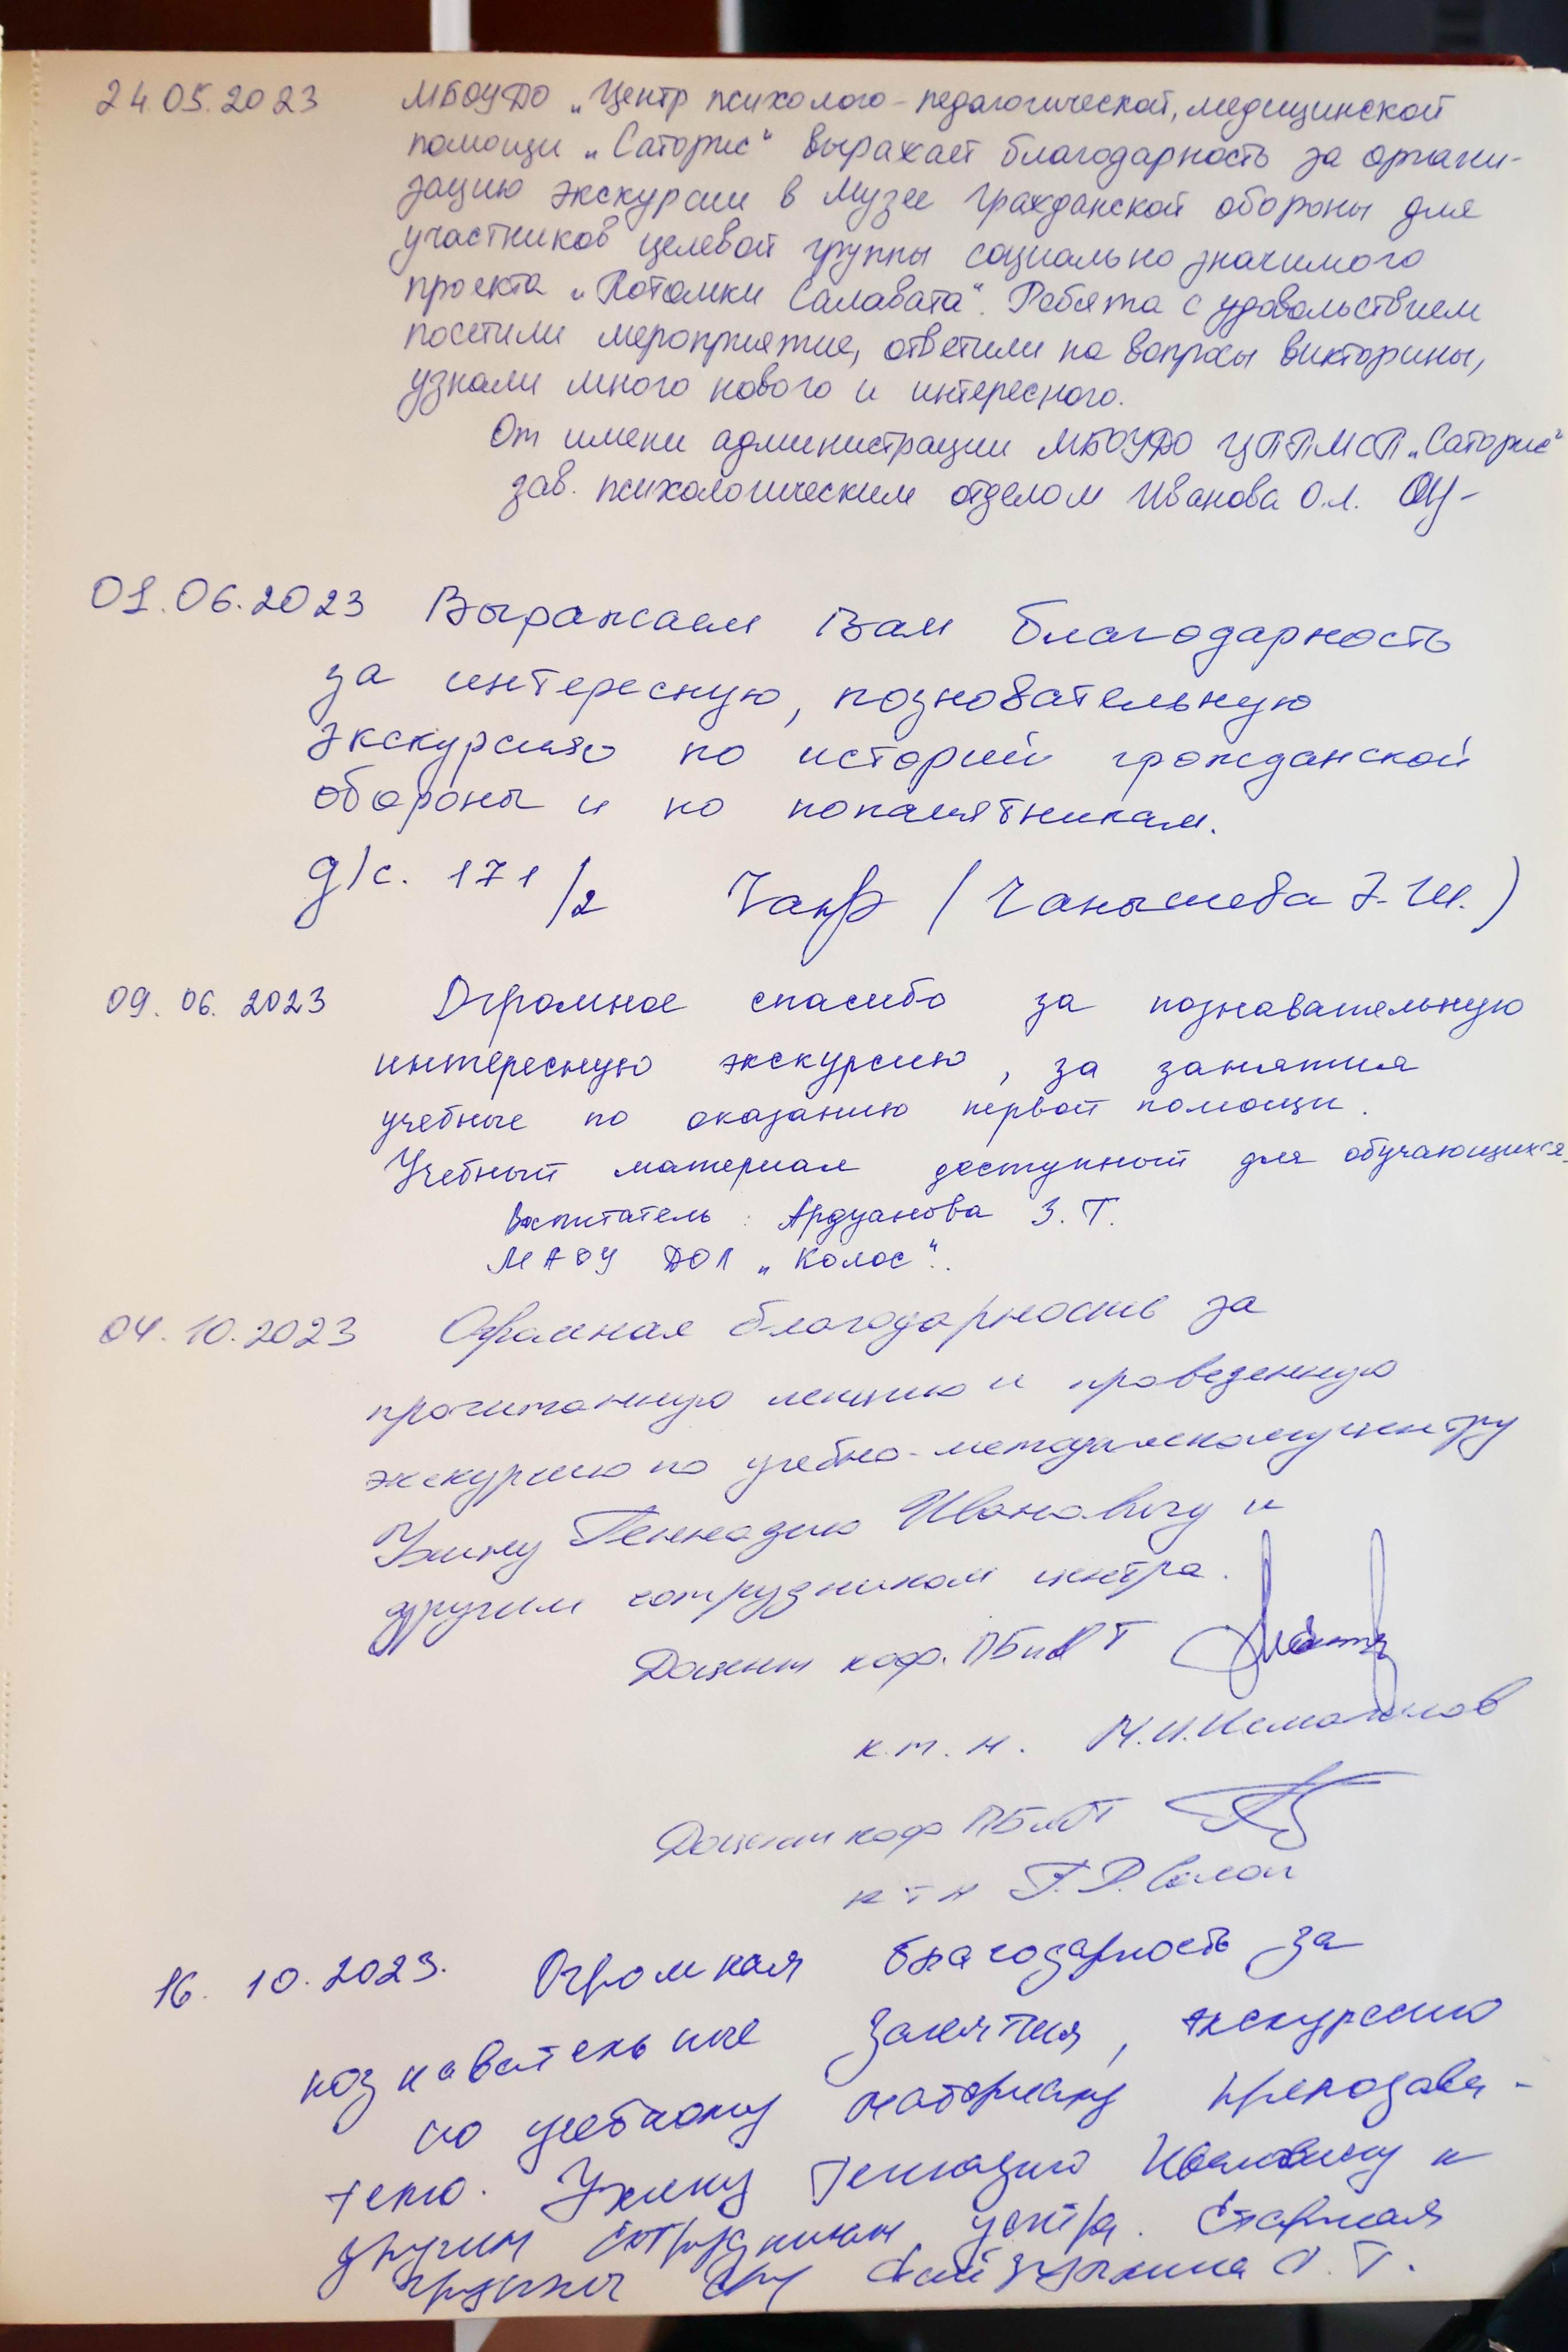 24.05.2023 МБОУДО „Центр психолого-педагогической, медицинской
помощи „Саторис" выражает благодарность за органи-
зацию экскурсии в Музее Гражданской обороны для
участников целевой группы социально значимого
проекта „Потомки Салавата". Ребята с удовольствием
посетили мероприятие, ответили на вопросы викторины,
узнали много нового и интересного.
От имени администрации МБОУДО ЦППМСП „Саторис"
зав. психологическим отделом Иванова О.Л.
01.06.2023 Выражаем Вам благодарность
за интересную, позновательную
экскурсию по историй гражданской
обороны и по попамятникам.
д/с. 171/2 (Чанышева З.Ш.)
09.06.2023 Огромное спасибо за познавательную
интересную экскурсию, за занятия
учебные по оказанию первой помощи.
Учебный материал доступный для обучающихся.
Воспитатель: Ардуанова З.Т.
МАОУ ДОЛ „Колос".
04.10.2023 Огромная благодарность за
прочитанную лекцию и проведенную
экскурсию по учебно-методическому центру
Геннадию Ивановичу и
другим сотрудникам центра.
Доцент каф. ПБиОТ
к.т.н. М.И. Исмагилов
Доцент каф ПБиОТ
ктн
16.10.2023. Огромная благодарность за
познавательные занятия, экскурсию
по учебному материалу преподава-
телю. Геннадию Ивановичу и
другим сотрудникам центра. Старшая
группы